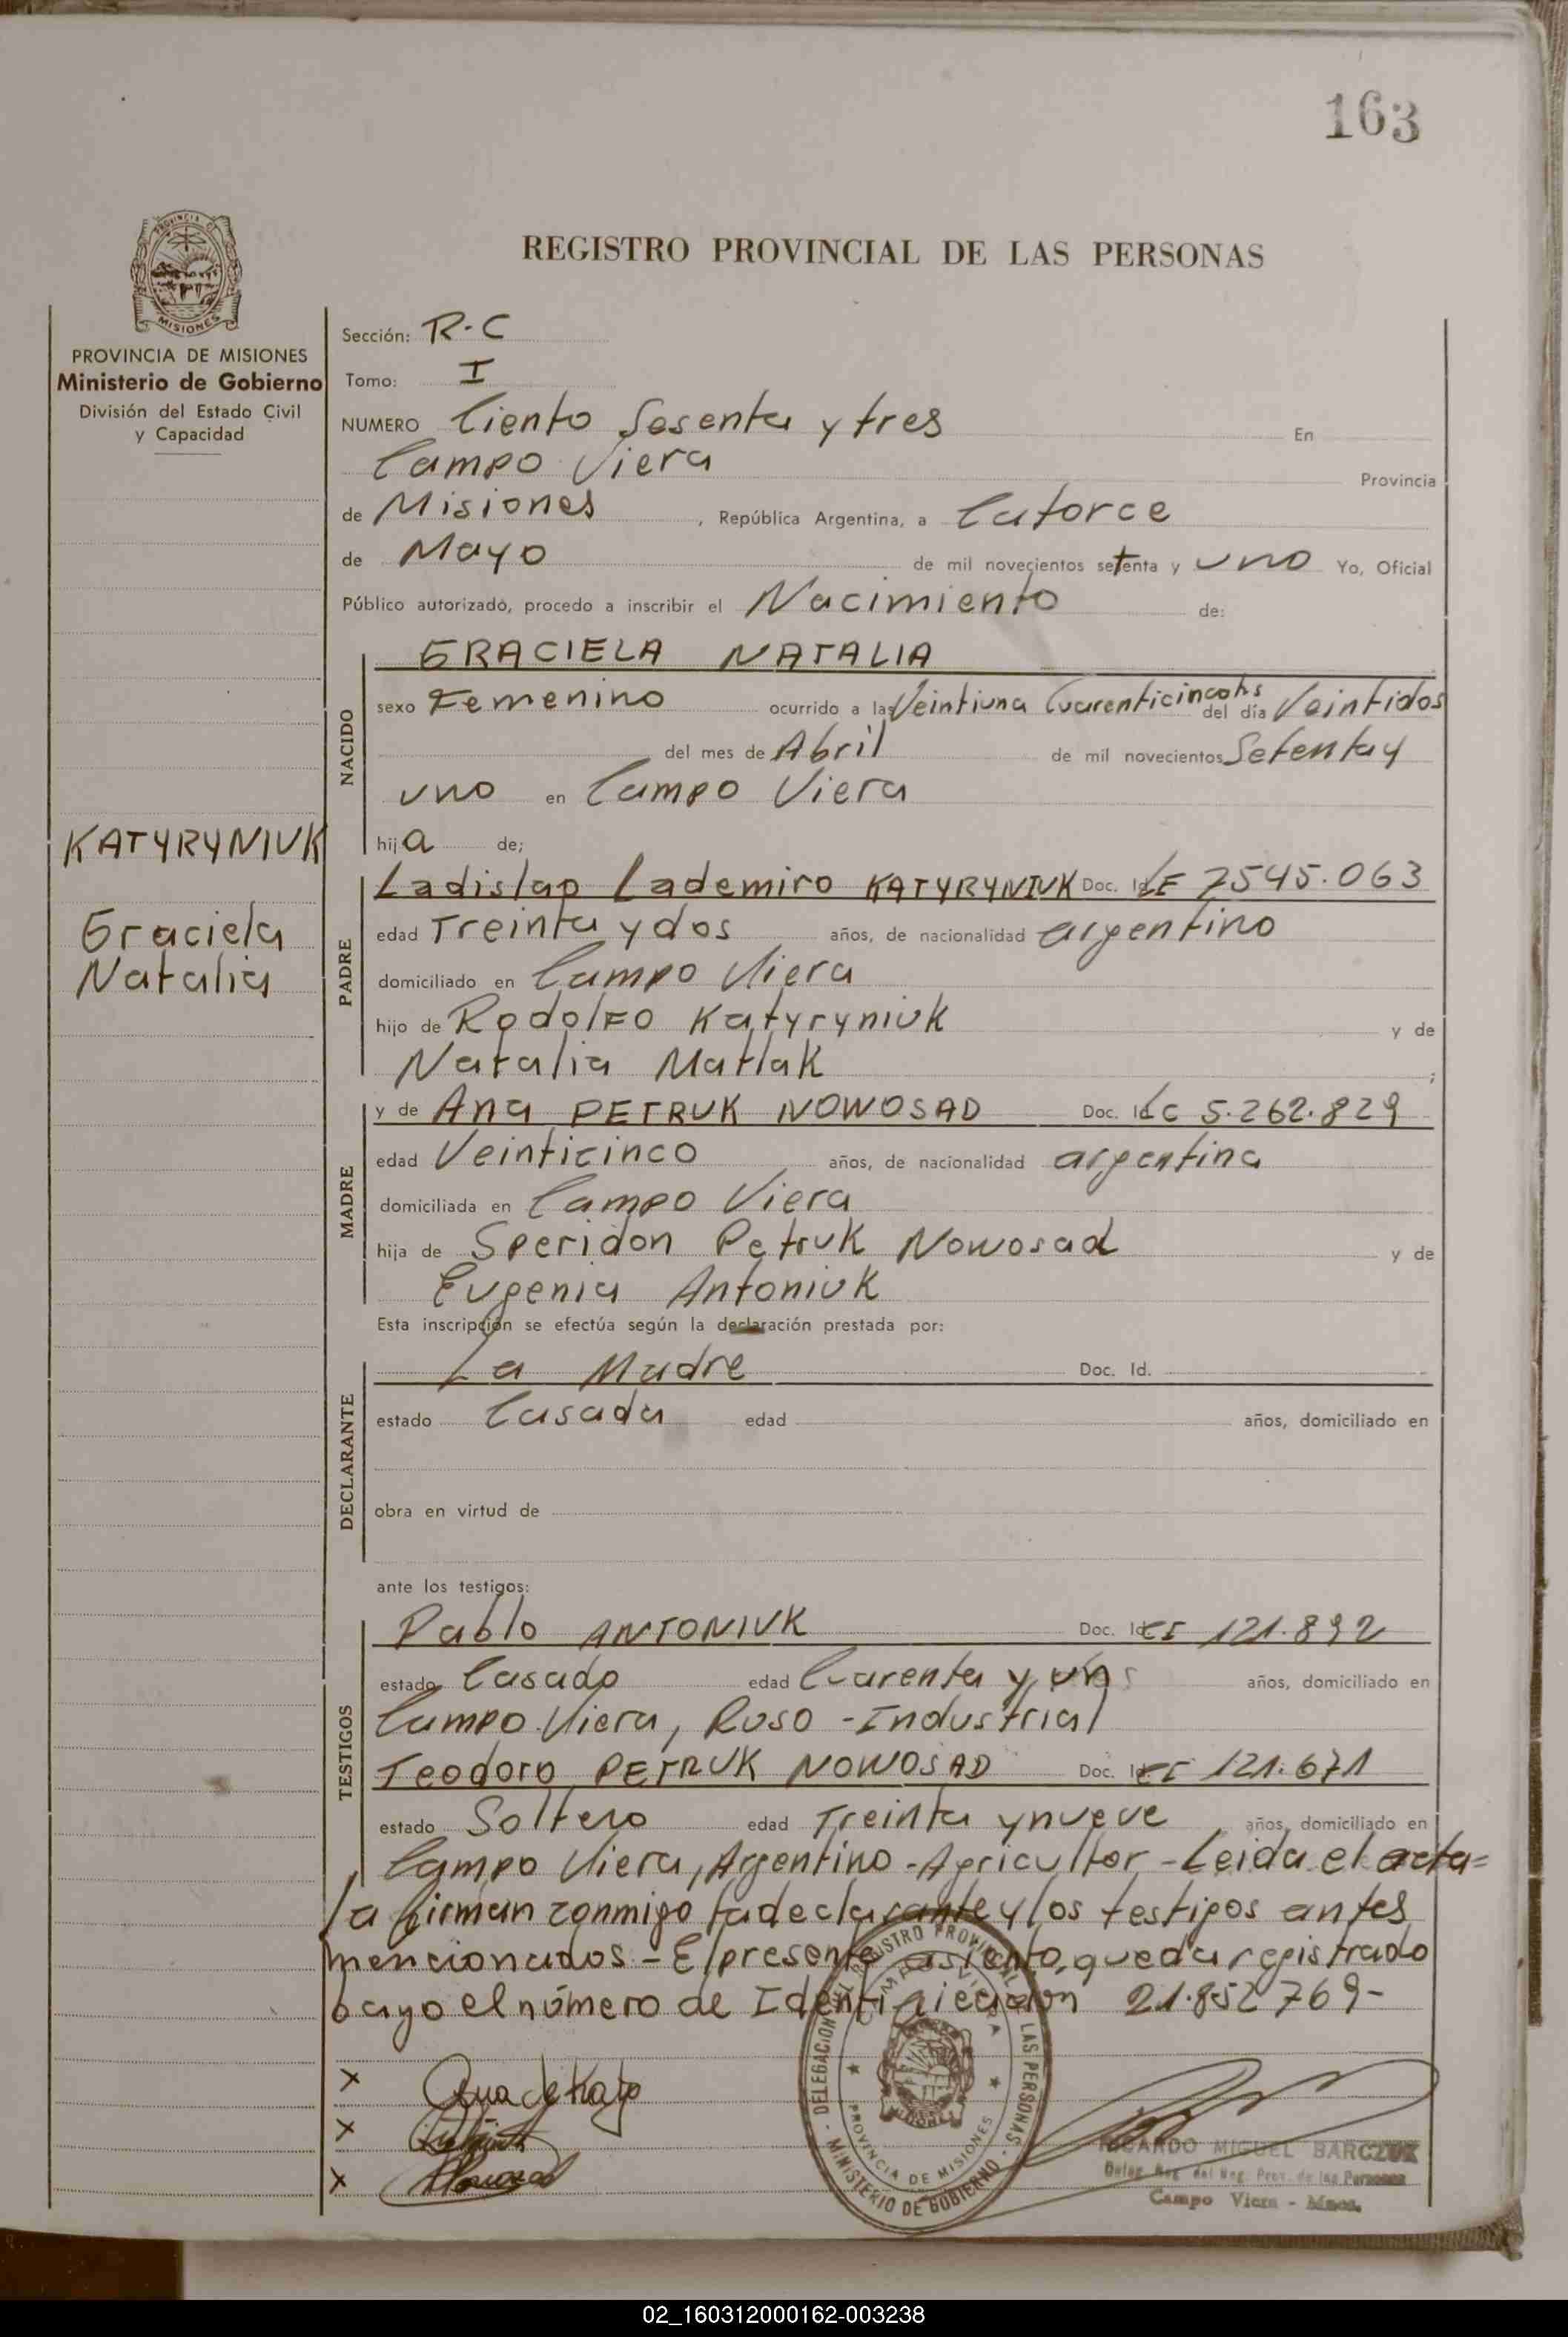 163
REGISTRO PROVINCIAL DE LAS PERSONAS
PROVINCIA DE MISIONES
Ministerio de Gobierno
División del Estado Civil
y Capacidad
KATYRYNIUK
Graciela
Natalia
Sección: R-C
Tomo: I
NUMERO Ciento Sesenta y tres En
Campo Viera Provincia
de Misiones, República Argentina, a Catorce
de Mayo de mil novecientos setenta y uno Yo, Oficial
Público autorizado, procedo a inscribir el Nacimiento de:
NACIDO
GRACIELA NATALIA
sexo Femenino ocurrido a las Veintiuna Cuarenticinco hs del día Veintidos
del mes de Abril de mil novecientos Setenta y
uno en Campo Viera
hija de;
PADRE
Ladislao Lademiro KATYRYNIUK Doc. Id. LE 7545.063
edad Treinta y dos años, de nacionalidad argentino
domiciliado en Campo Viera
hijo de Rodolfo Katyryniuk y de
Natalia Matlak ;
MADRE
y de Ana PETRUK NOWOSAD Doc. Id. LC 5.262.829
edad Veinticinco años, de nacionalidad argentina
domiciliada en Campo Viera
hija de Speridon Petruk Nowosad y de
Eugenia Antoniuk
Esta inscripción se efectúa según la declaración prestada por:
DECLARANTE
La Madre Doc. Id.
estado Casada edad años, domiciliado en
obra en virtud de
ante los testigos:
TESTIGOS
Pablo ANTONIUK Doc. Id. CI 121.892
estado Casado edad Cuarenta y un años, domiciliado en
Campo Viera, Ruso - Industrial
Teodoro PETRUK NOWOSAD Doc. Id. CI 121.671
estado Soltero edad Treinta y nueve años, domiciliado en
Campo Viera, Argentino - Agricultor - Leida el acta=
la firman conmigo la declarante y los testigos antes
mencionados - El presente asiento, queda registrado
bayo el número de Identificación 21.852769-
x Ana de Katy
x
x Nowosad
DELEGACION DEL REGISTRO PROVINCIAL DE LAS PERSONAS - MINISTERIO DE GOBIERNO -
CAMPO VIERA
PROVINCIA DE MISIONES
RICARDO MIGUEL BARCZUK
Deleg. Reg. del Reg. Prov. de las Personas
Campo Viera - Mnes.
02_160312000162-003238